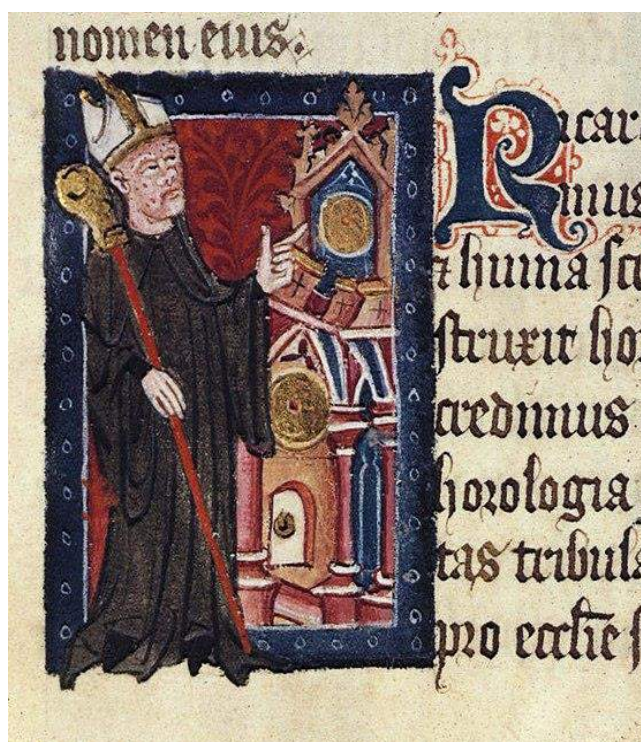 nomen eius.
Ricar
struxit ho
credimus
horologia
tas tribul
pro ecclie